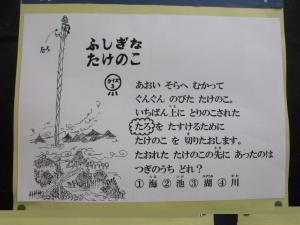 たろ
ふしぎな
たけのこ
クイズ
あおい そらへ むかって
ぐんぐん のびた たけのこ。
いちばん上に とりのこされた
たろを たすけるために
たけのこ を 切りたおします。
たおれた たけのこの先に あったのは
つぎのうち どれ?
①海 ②池 ③湖 ④川